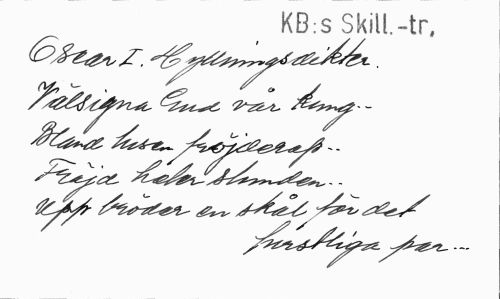 KB:s Skill.-tr,
Oscar I. Hyllningsdikter.
Välsigna Gud vår kung..
Bland tusen fröjderop..
Fröjd helar stunden..
Upp bröder en skål för det
furstliga par...